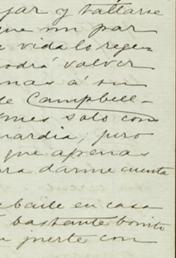 jar y saltarse
que un par
e vida lo regen
odrá volver
nas á su
de Campbell-
emes solo con
uardia, pero
que apenas
ara darme cuenta
ebaile en casa
bastante bonito
puerte con